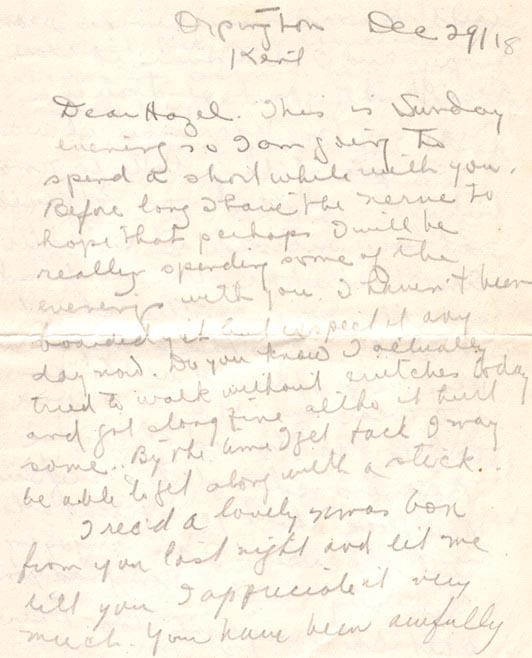 Orpington Dec 29/18
Kent
Dear Hazel. This is Sunday
evening so I am going to
spend a short while with you.
Before long I have the nerve to
hope that perhaps I will be
really spending some of the
evenings with you. I haven't been
boarded yet but expect it any
day now. Do you know I actually
tried to walk without crutches today
and got along fine altho it hurt
some. By the time I get back I may
be able to get along with a stick.
I rec'd a lovely xmas box
from you last night and let me
tell you I appreciate it very
much. You have been awfully